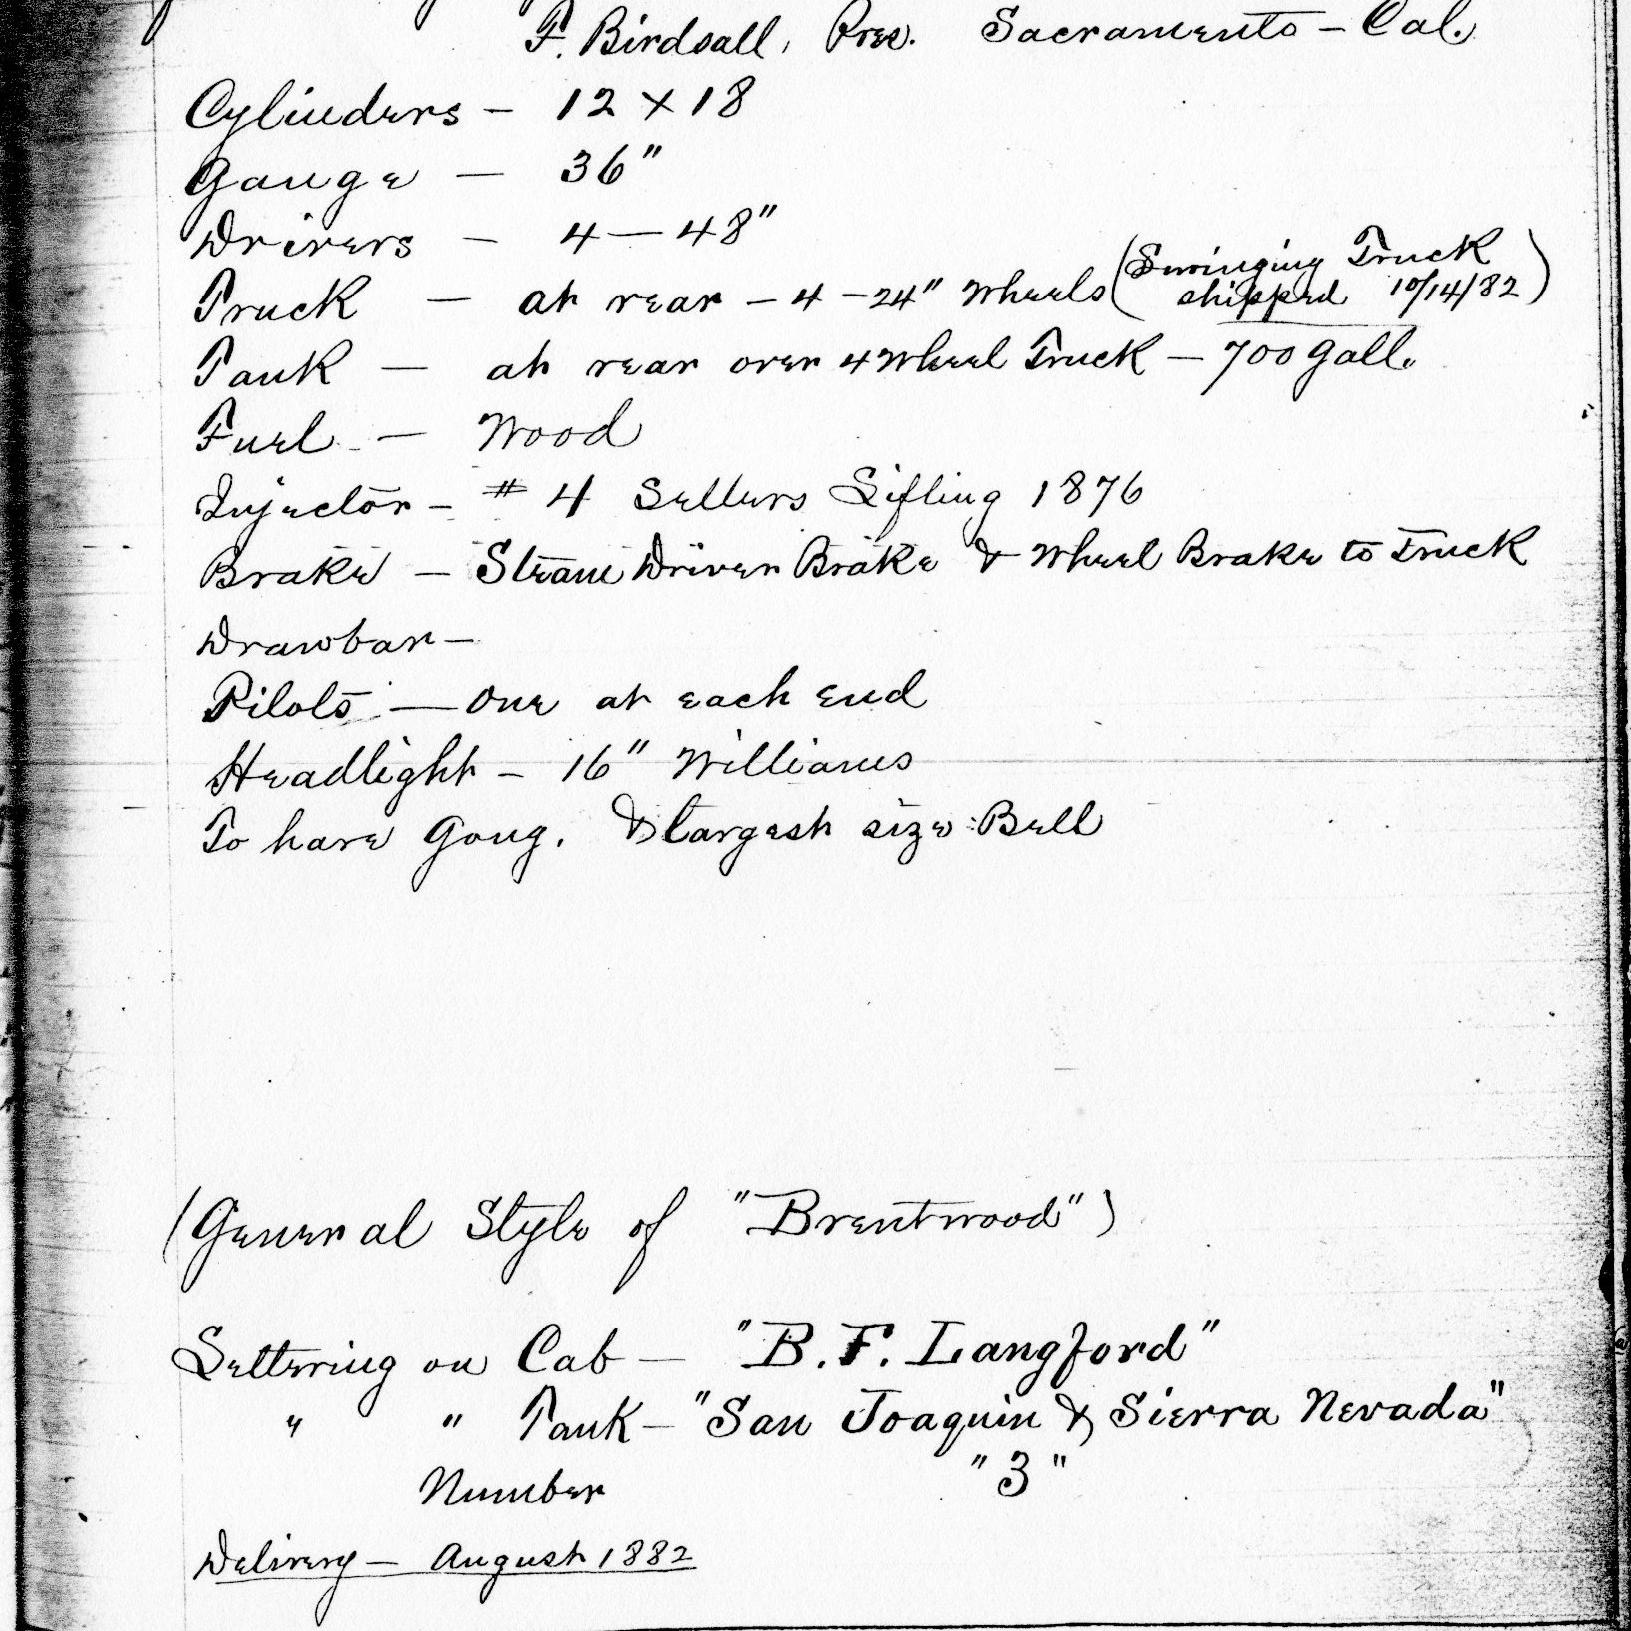 F. Birdsall, Pres. Sacramento - Cal.
Cylinders - 12 x 18
Gauge - 36"
Drivers - 4 - 48"
Truck - at rear - 4 - 24" Wheels (Swinging Truck shipped 10/14/82)
Tank - at rear over 4 Wheel Truck - 700 Gall.
Fuel - Wood
Injector - # 4 Sellers Lifting 1876
Brake - Steam Driver Brake & Wheel Brake to Truck
Drawbar -
Pilots - One at each end
Headlight - 16" Williams
To have Gong. & largest size Bell
(General Style of "Brentwood")
Lettering on Cab - "B. F. Langford"
" " Tank - "San Joaquin & Sierra Nevada"
Number "3"
Delivery - August 1882